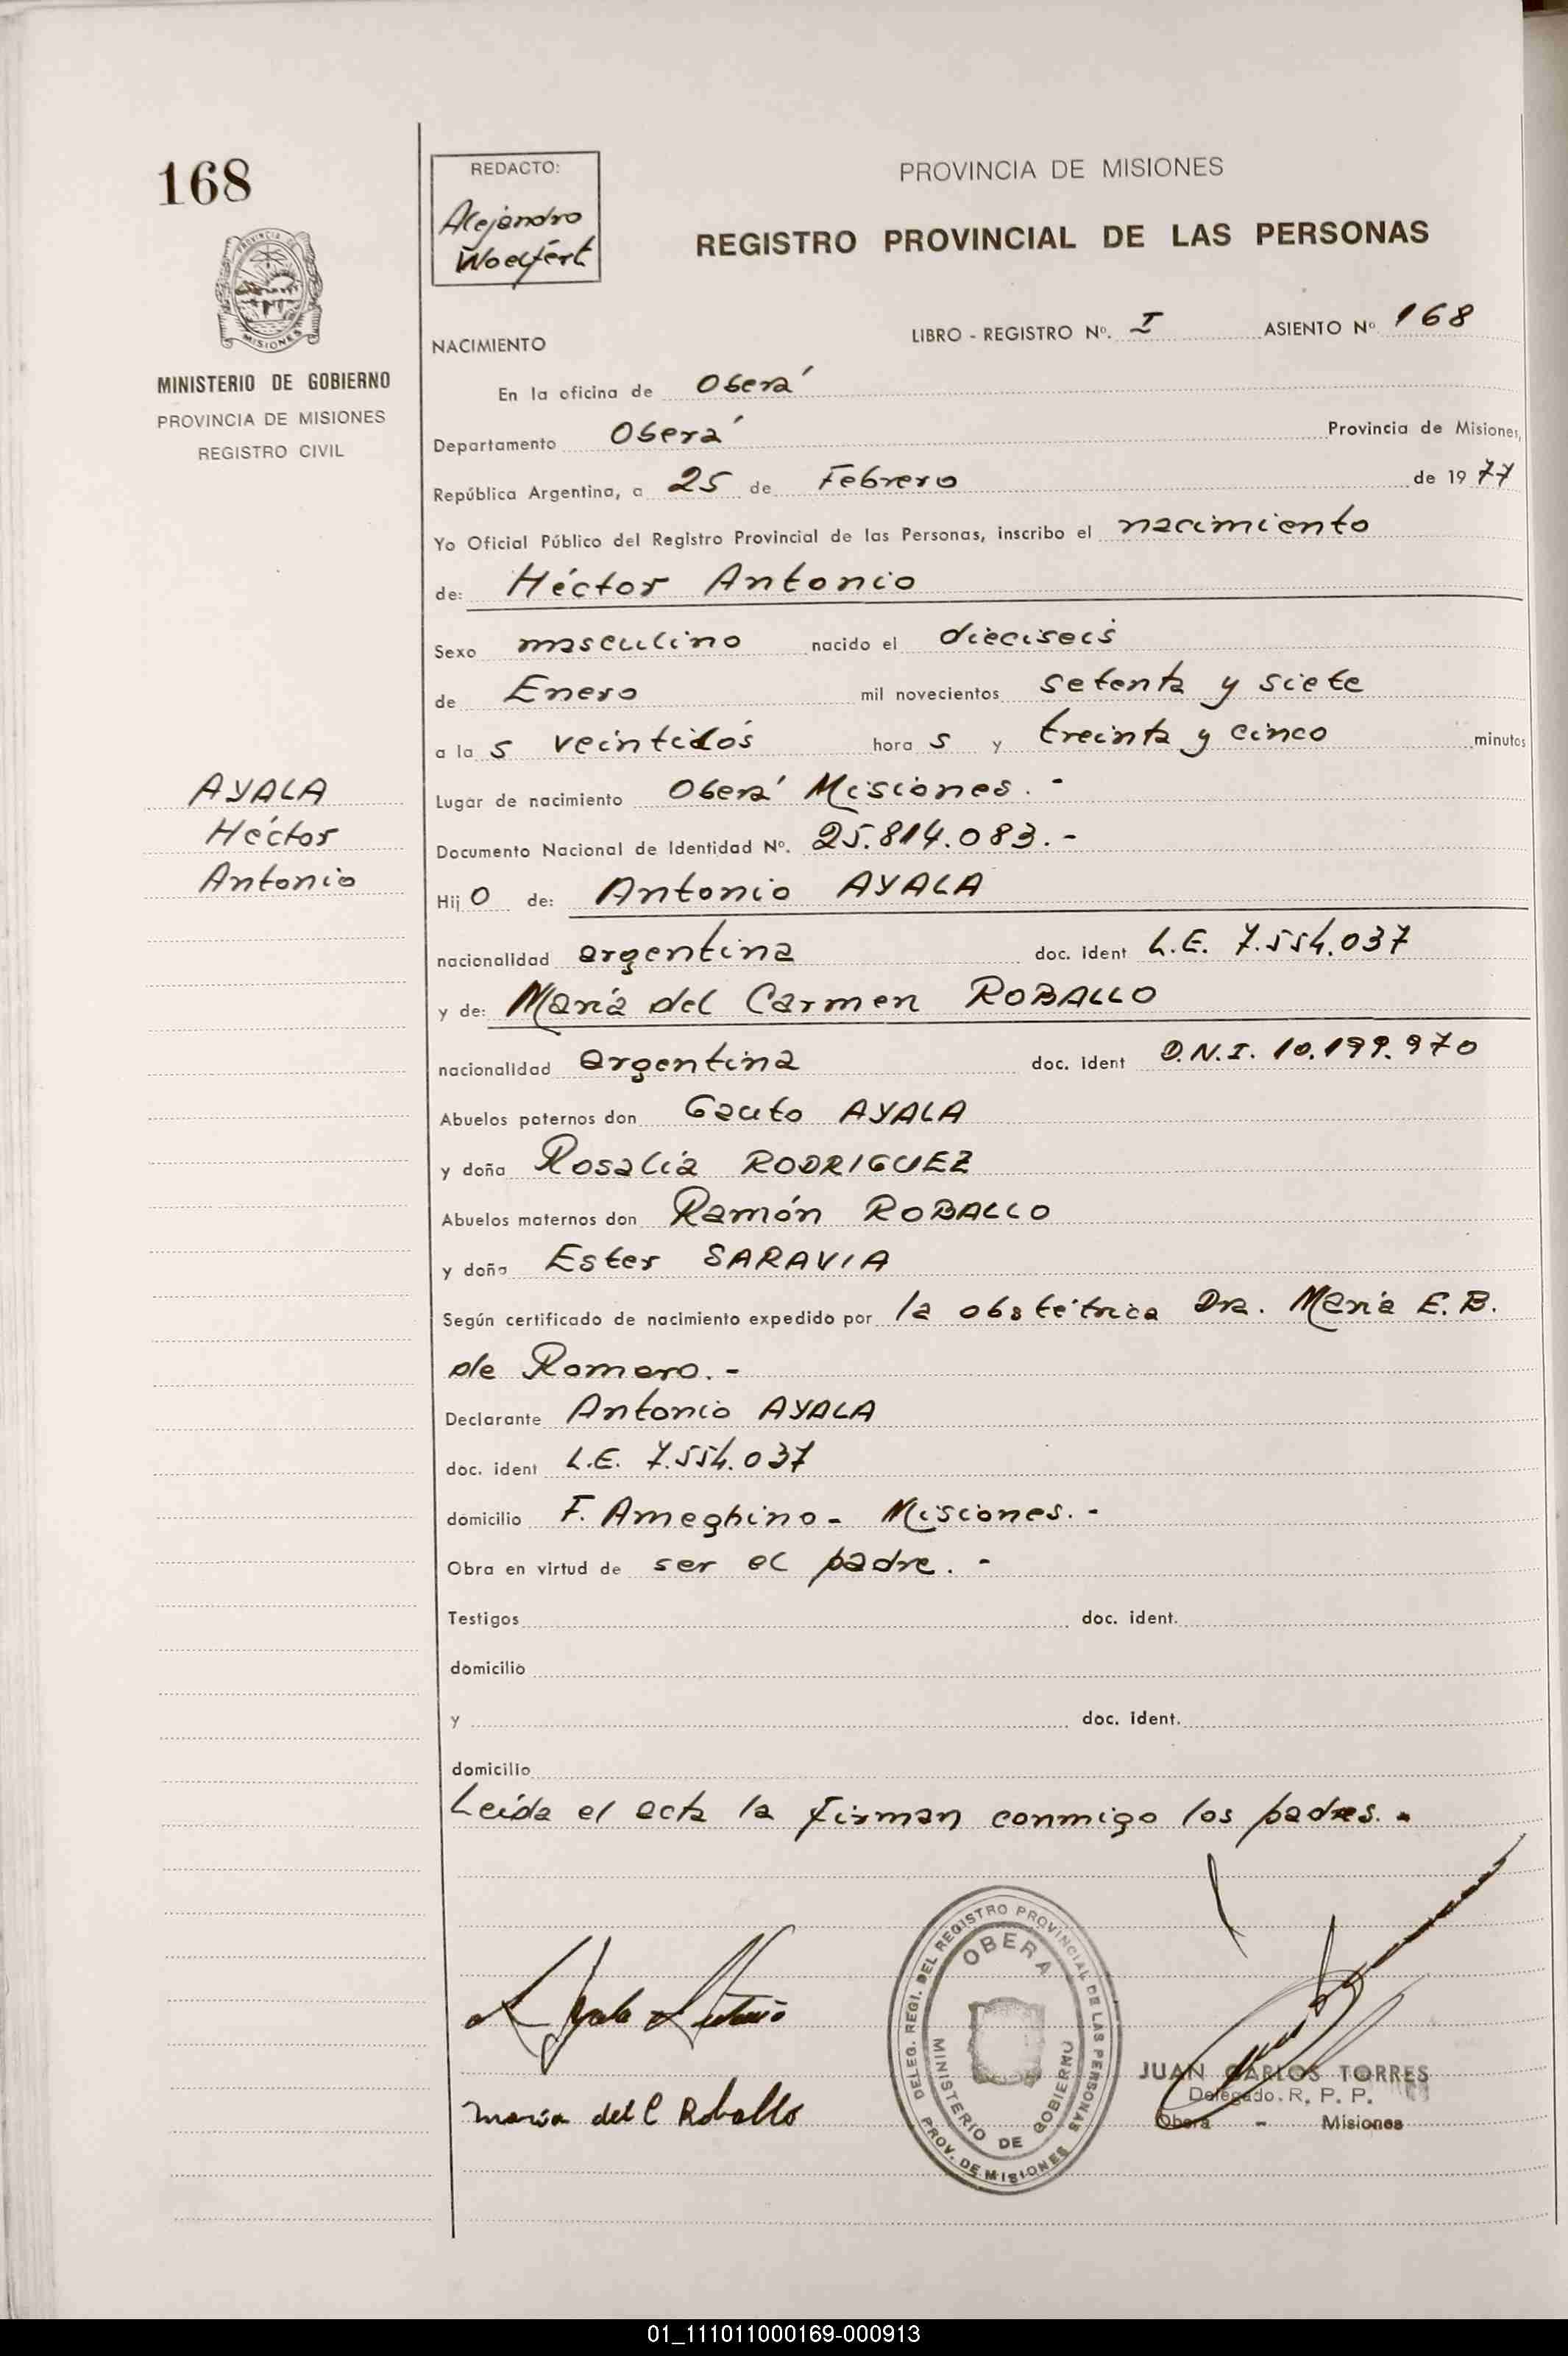 168
REDACTO:
Alejandro
Woelfert
PROVINCIA DE MISIONES
REGISTRO PROVINCIAL DE LAS PERSONAS
PROVINCIA DE
MISIONES
MINISTERIO DE GOBIERNO
PROVINCIA DE MISIONES
REGISTRO CIVIL
NACIMIENTO LIBRO - REGISTRO Nº. I ASIENTO Nº 168
En la oficina de Oberá
Departamento Oberá Provincia de Misiones,
República Argentina, a 25 de Febrero de 1977
Yo Oficial Público del Registro Provincial de las Personas, inscribo el nacimiento
de: Héctor Antonio
Sexo masculino nacido el dieciseis
de Enero mil novecientos setenta y siete
a la s veintidós hora s y treinta y cinco minutos
Lugar de nacimiento Oberá Misiones.-
AYALA
Héctor
Antonio
Documento Nacional de Identidad Nº. 25.814.083.-
Hij o de: Antonio AYALA
nacionalidad argentina doc. ident L.E. 7.554.037
y de: María del Carmen ROBALLO
nacionalidad argentina doc. ident D.N.I. 10.199.970
Abuelos paternos don Gauto AYALA
y doña Rosalía RODRIGUEZ
Abuelos maternos don Ramón ROBALLO
y doña Ester SARAVIA
Según certificado de nacimiento expedido por la obstétrica Dra. María E. B.
de Romero.-
Declarante Antonio AYALA
doc. ident L.E. 7.554.037
domicilio F. Ameghino - Misiones.-
Obra en virtud de ser el padre.-
Testigos doc. ident.
domicilio
y doc. ident.
domicilio
Leída el acta la firman conmigo los padres.-
Ayala Antonio
María del C Roballo
DELEG. REGI. DEL REGISTRO PROVINCIAL DE LAS PERSONAS
PROV. DE MISIONES
OBERA
MINISTERIO DE GOBIERNO
JUAN CARLOS TORRES
Delegado. R. P. P.
Oberá - Misiones
01_111011000169-000913